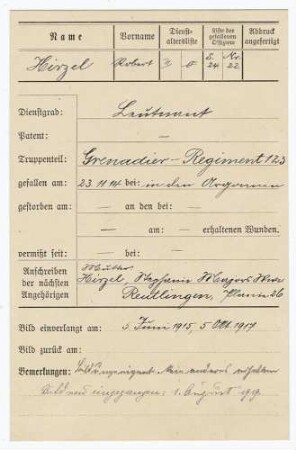 Name Vorname Dienstaltersliste Liste der gefallenen Offiziere Abdruck angefertigt
S. Nr.
Hirzel Robert 24 22
Dienstgrad: Leutnant
Patent: —
Truppenteil: Grenadier-Regiment 123
gefallen am: 23.11.14 bei: in den Argonnen
gestorben am: — an den bei: —
— am: — erhaltenen Wunden.
vermißt seit: — bei: —
Anschreiben der nächsten Angehörigen
Mutter
Hirzel, Stephanie Majors
Reutlingen, 26
Bild einverlangt am: 5 Juni 1915, 5 Okt. 1917
Bild zurück am:
Bemerkungen: Bild ungeeignet kein anderes erhalten
Bild neu eingegangen: 1. August 1919